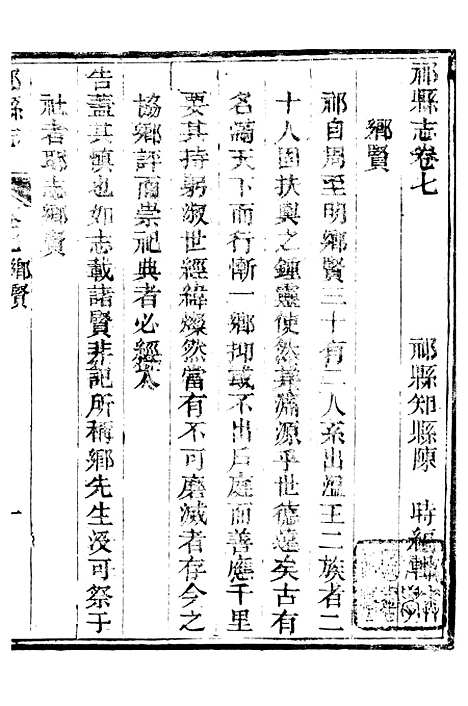 祁縣志卷七　祁縣知縣陳　時編輯
鄉賢
祁自周至明鄉賢三十有二人系出溫王二族者二
十人固扶輿之鍾靈使然其溯源乎世德遠矣古有
名滿天下而行慚一鄉抑或不出戶庭而善應千里
要其持躬淑世經緯燦然當有不可磨滅者存今之
協鄉評而崇祀典者必經
告蓋其慎也如志載諸賢非記所稱鄉先生沒可祭于
社者耶志鄉賢
祁縣志　卷七鄉賢　一